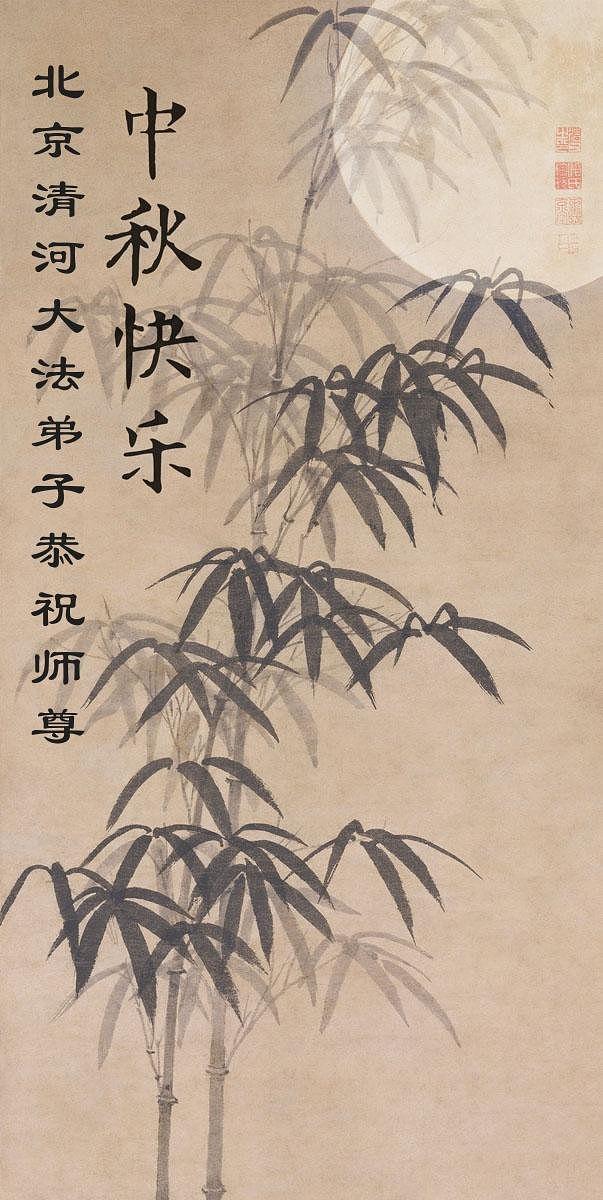 北京清河大法弟子恭祝师尊
中秋快乐